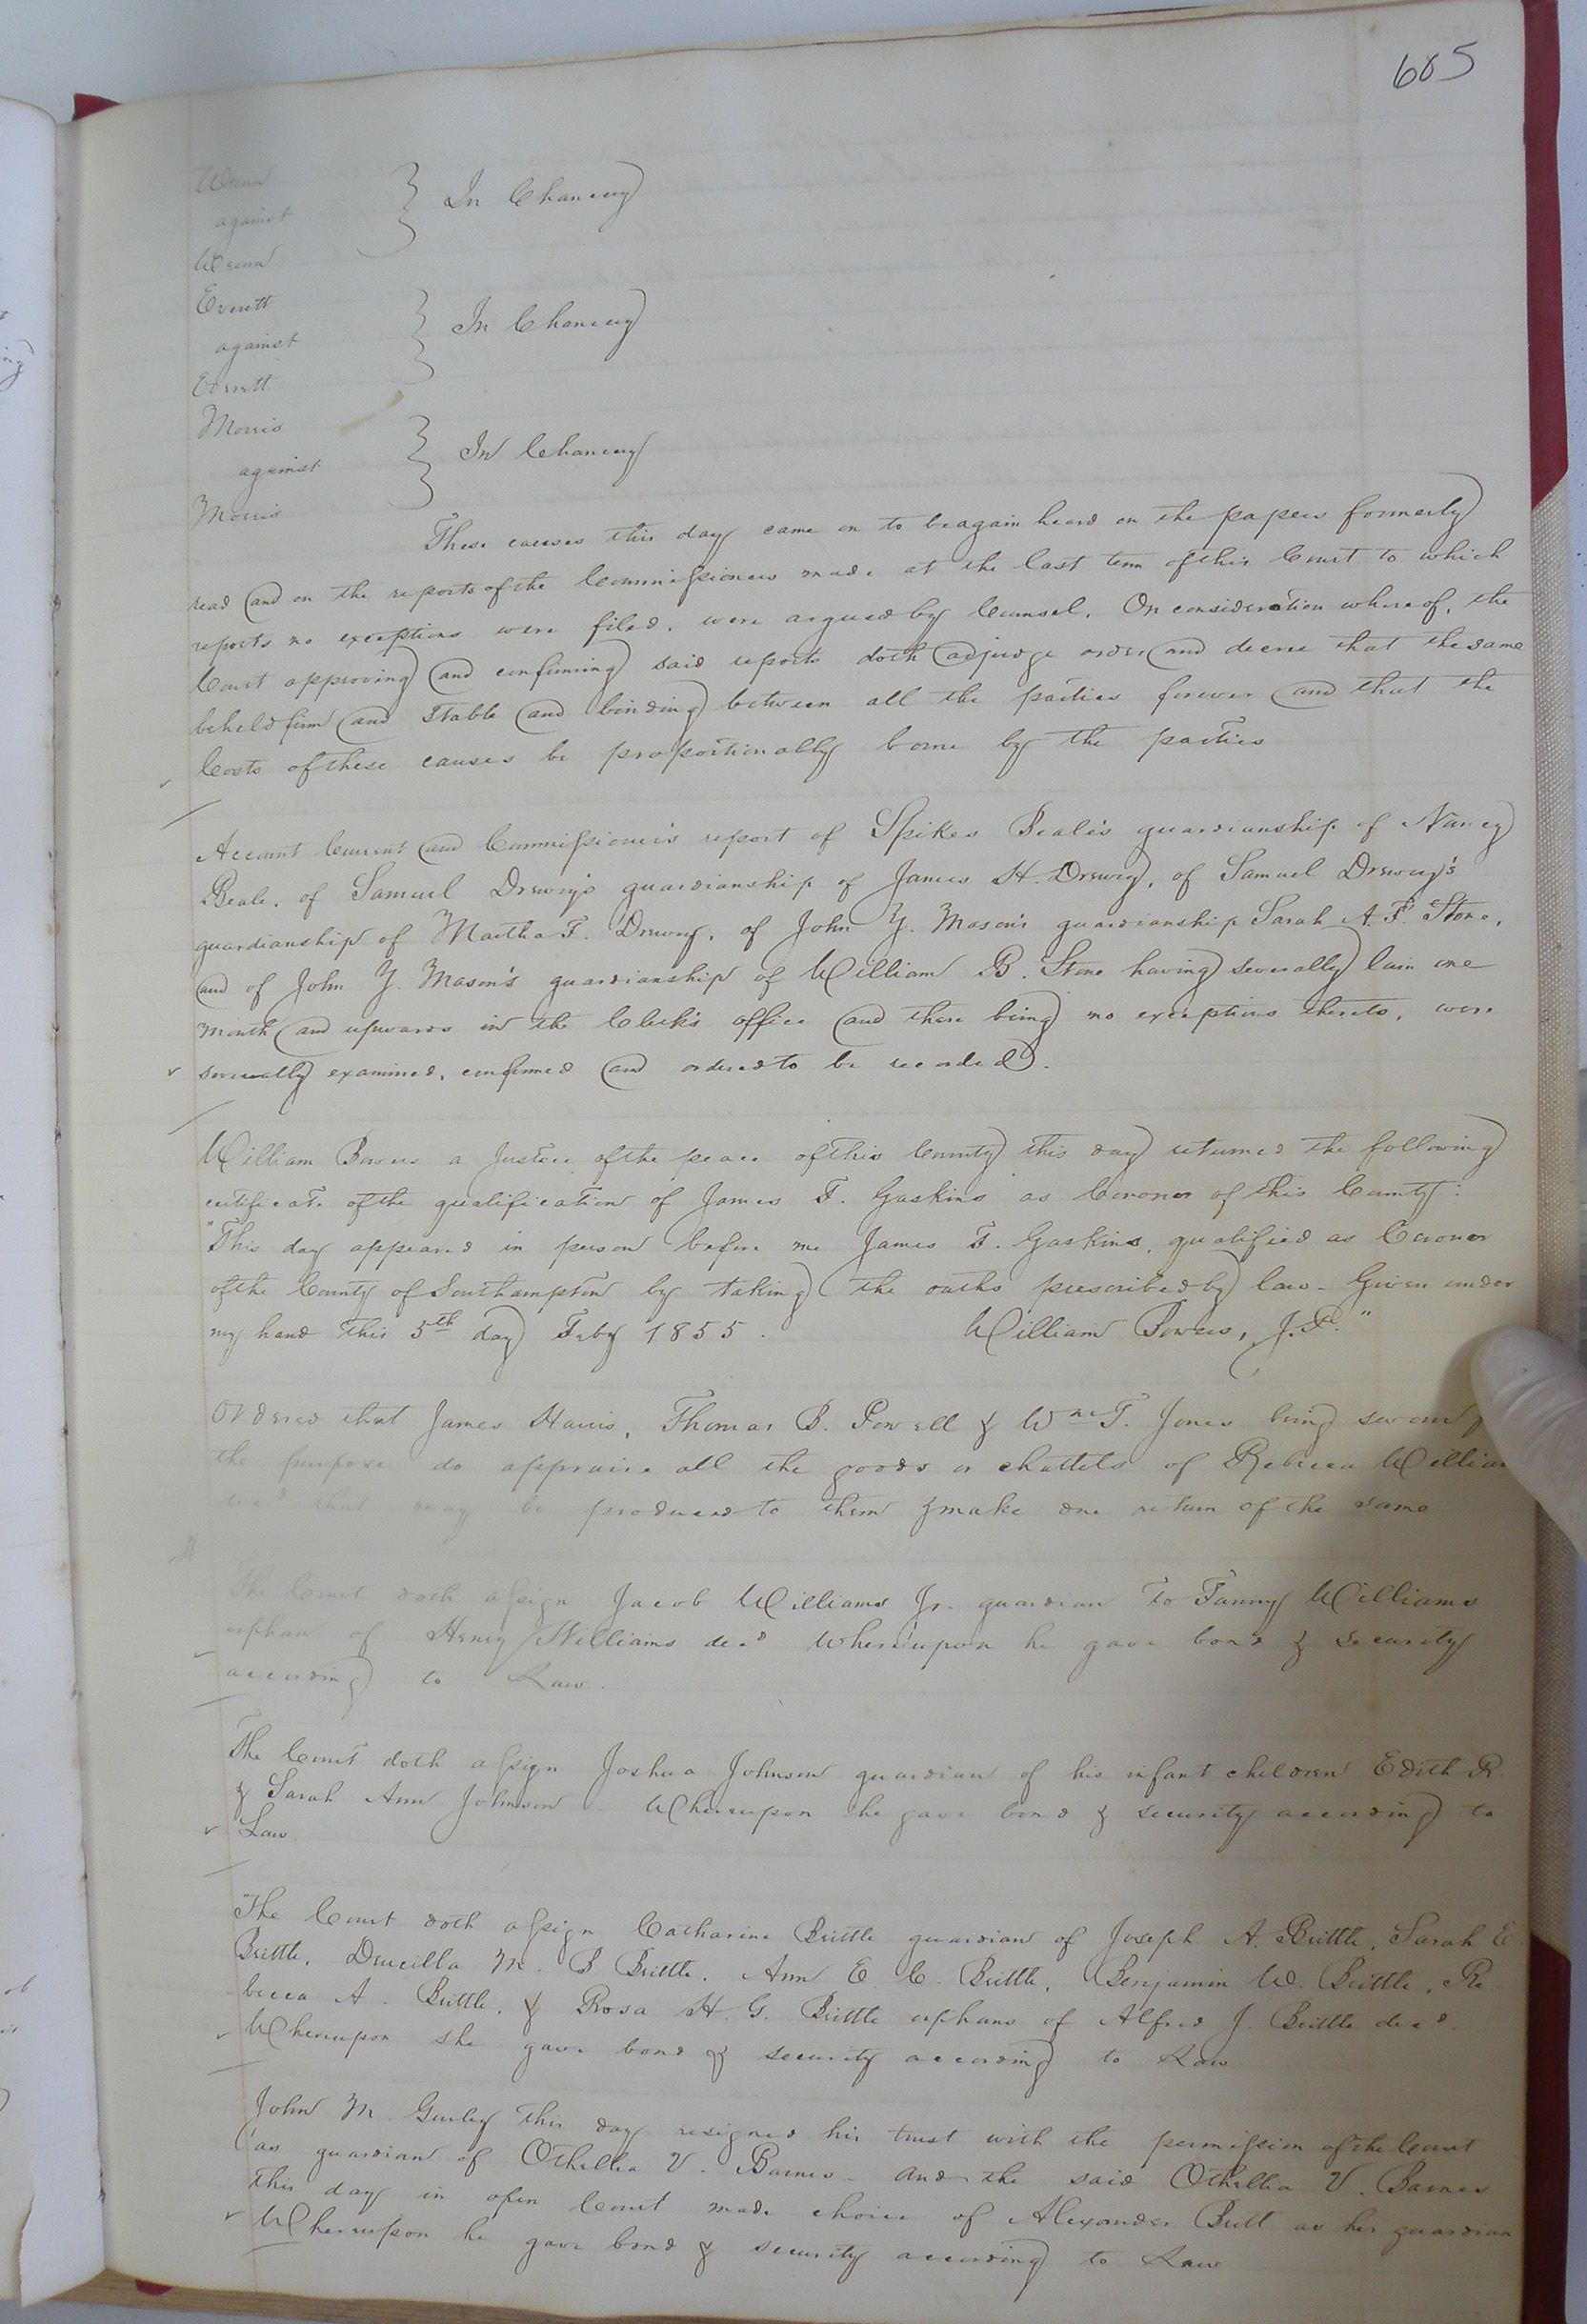 605
Wrenn
against } In Chancery
Wrenn
Everett
against } In Chancery
Everett
Morris
against } In Chancery
Morris
These causes this day came on to be again heard on the papers formerly
read and on the reports of the Commissioners made at the last term of this Court to which
reports no exceptions were filed, were argued by Counsel. On consideration whereof, the
Court approving and confirming said reports doth adjudge order and decree that the same
be held firm and Stable and binding between all the parties forever and that the
Costs of these causes be proportionally borne by the parties
Account Current and Commissioner's report of Spikes Beale's guardianship of Nancy
Beale, of Samuel Drewry's guardianship of James H. Drewry, of Samuel Drewry's
guardianship of Martha F. Drewry, of John Y. Mason's guardianship Sarah A. F. Stone,
and of John Y. Mason's guardianship of William B. Stone having severally lain one
month and upwards in the Clerk's office and there being no exceptions thereto, were
severally examined, confirmed and ordered to be recorded.
William Bowers a Justice of the peace of this County this day returned the following
certificate of the qualification of James F. Gaskins as Coroner of this County:
"This day appeared in person before me James F. Gaskins, qualified as Coroner
of the County of Southampton by taking the oaths prescribed by law - Given under
my hand this 5th day Feby 1855. William Bowers, J.P."
Ordered that James Harris, Thomas B. Powell & Wm T. Jones being sworn
the purpose do appraise all the goods or chattels of Rebecca William
decd that may be produced to them & make one return of the same
The Court doth assign Jacob Williams Jr. guardian to Fanny Williams
orphan of Henry Williams decd Whereupon he gave bond & security
according to Law.
The Court doth assign Joshua Johnson guardian of his infant children Edith R.
& Sarah Ann Johnson - Whereupon he gave bond & security according to
Law.
The Court doth assign Catharine Brittle guardian of Joseph A. Brittle, Sarah E.
Brittle, Drucilla M. B Brittle, Ann E. C. Brittle, Benjamin W. Brittle, Re-
becca A. Brittle, & Rosa H. G. Brittle orphans of Alfred J. Brittle decd.
Whereupon she gave bond & security according to Law
John M Gurley this day resigned his trust with the permission of the Court
as guardian of Othellia V. Barnes - and the said Othellia V. Barnes
this day in open Court made choice of Alexander Britt as her guardian
Whereupon he gave bond & security according to Law